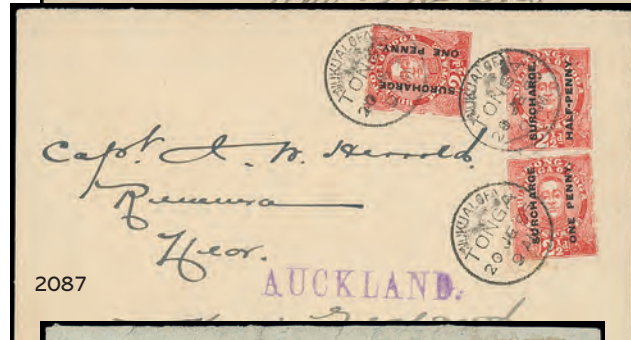 NUKUALOFA
TONGA
20
SURCHARGE.
ONE PENNY
2½d
NUKUALOFA
TONGA
20
SURCHARGE.
HALF-PENNY
2½d
NUKUALOFA
TONGA
20 JE
9 A
SURCHARGE.
ONE PENNY
2½d
Capt. J. W. Herrold.
Remuera
Near.
2087
AUCKLAND.